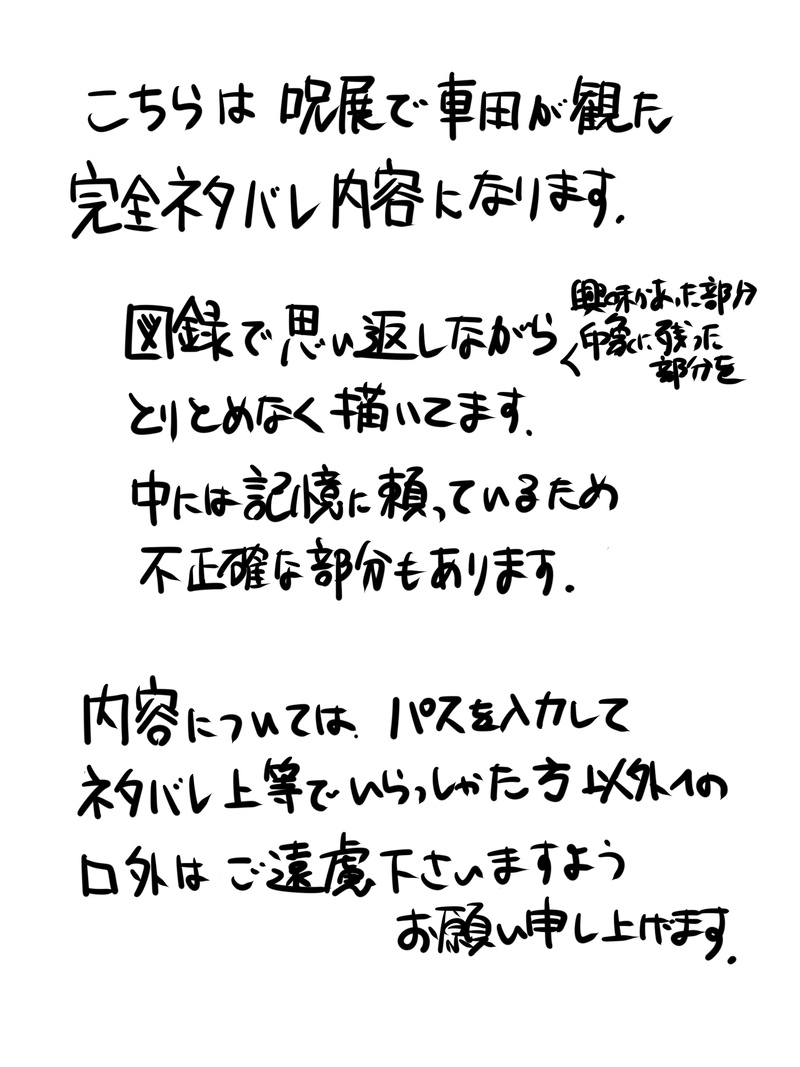 こちらは 呪展で車田が観た
完全ネタバレ内容になります.
図録で思い返しながら
興味があった部分
印象に残った
部分を
とりとめなく描いてます.
中には記憶に頼っているため
不正確な部分もあります.
内容については. パスを入力して
ネタバレ上等でいらっしゃた方以外への
口外は ご遠慮下さいますよう
お願い申し上げます.